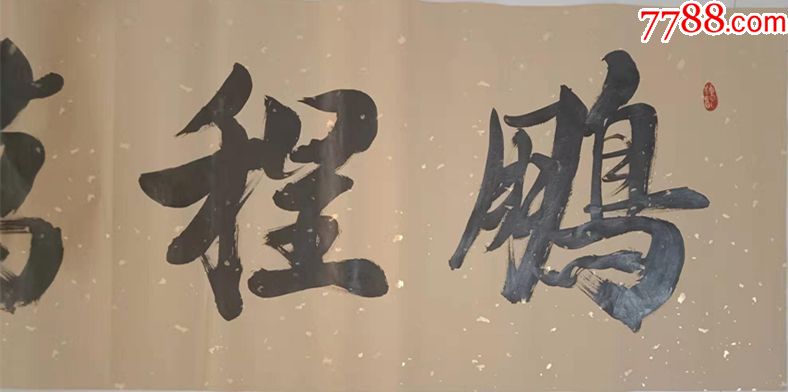 7788.com
鹏程萬